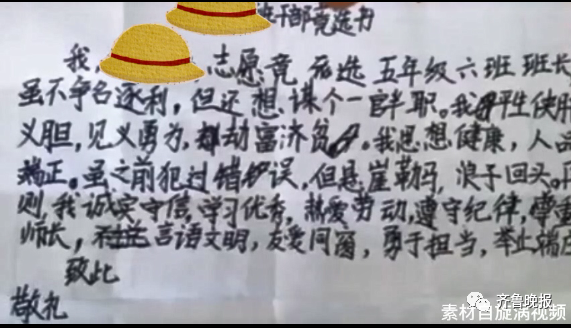 选干部竞选书
我, 志愿竞 选 五年级六班 班长
虽不争名逐利, 但还 想 谋个一官半职。我平生侠肝
义胆, 见义勇为, 劫富济贫。我思想健康, 人品
端正。虽之前犯过错误, 但悬崖勒马, 浪子回头。
则 我诚实守信, 学习优秀, 热爱劳动, 遵守纪律, 尊重
师长, 言语文明, 友爱同窗, 勇于担当, 举止端庄
致此
敬礼
齐鲁晚报
素材自旋涡视频